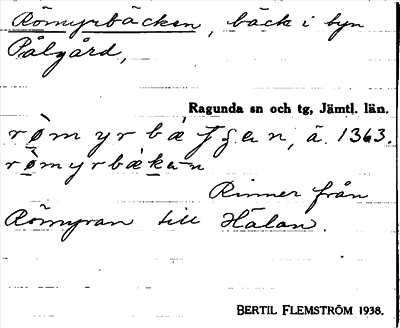 Römyrbäcken, bäck i byn
Pålgård,
Ragunda sn och tg, Jämtl. län.
å. 1363.
Rinner från
Römyran till Hälan.
BERTIL FLEMSTRÖM 1938.